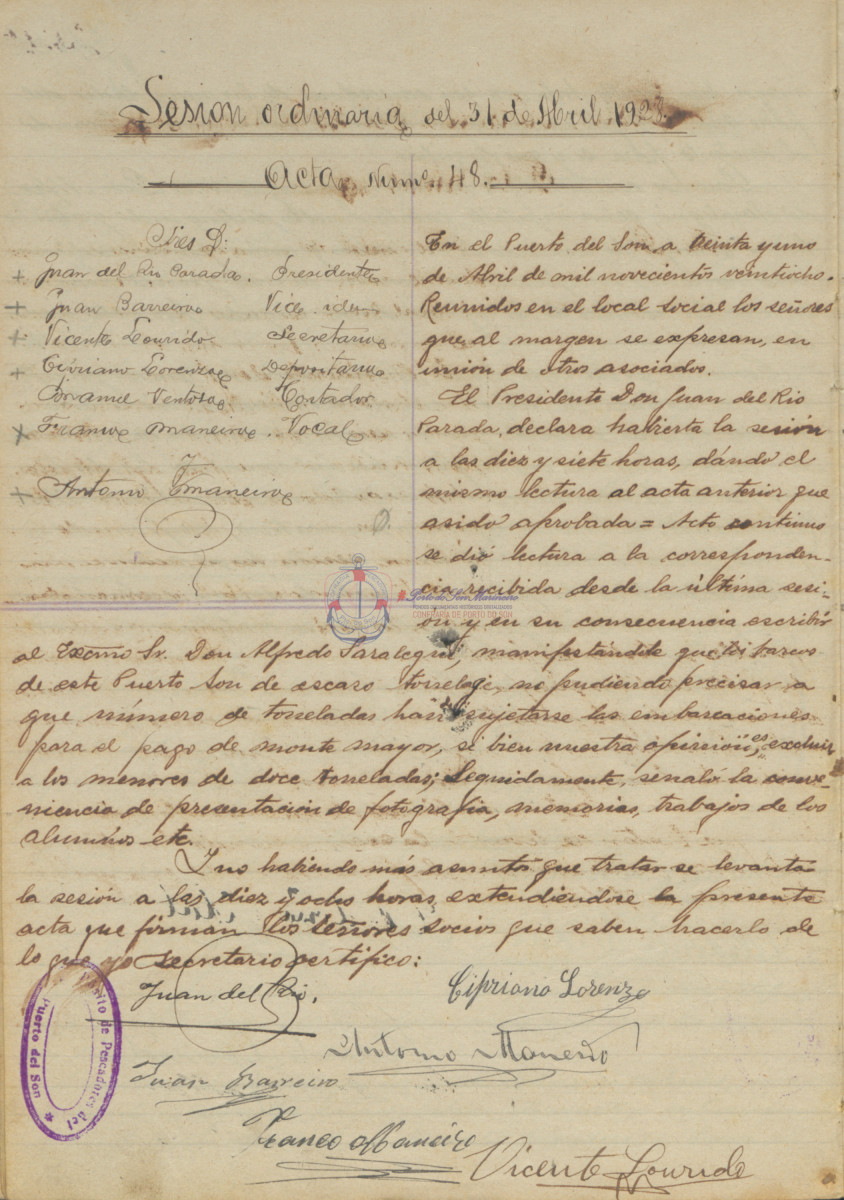 Sesion ordinaria del 31 de Abril 1928.
Acta Num. 48.
Sres D:
Juan del Rio Parada. Presidente
Juan Barreiro Vice idem
Vicente Lourido Secretario
Cipriano Lorenzo Depositario
Ventoso Contador
Franco Maneiro. Vocal
Antonio Maneiro
En el Puerto del Son, a treinta y uno
de Abril de mil novecientos veintiocho.
Reunidos en el local social los señores
que al margen se expresan, en
unión de otros asociados.
El Presidente Don Juan del Rio
Parada, declara habierta la sesión
a las diez y siete horas, dándo el
mismo lectura al acta anterior que
asido aprobada = Acto continuo
se dió lectura a la corresponden-
cia recibida desde la última sesi-
ón y en su consecuencia escribir
al Excmo Sr. Don Alfredo Saralegui, manifestándole que los barcos
de este Puerto son de escaso tonelaje, no pudiendo precisar, a
que número de toneladas han sujetarse las embarcaciones
para el pago de monte mayor, si bien nuestra opinión, es, excluir
a los menores de doce toneladas; Seguidamente, señaló la conve-
niencia de presentación de fotografia, memorias, trabajos de los
alumnos etc.
Y no habiendo más asuntos que tratar se levanta
la sesión a las diez y ocho horas, extendiendose la presente
acta que firman los señores socios que saben hacerlo de
lo que yo secretario certifico:
Juan del Rio.
Cipriano Lorenzo
Antonio Maneiro
Juan Barreiro
Franco Maneiro
Vicente Lourido
Pósito de Pescadores del
Puerto del Son
Porto do Son Marineiro
FONDOS DOCUMENTAIS HISTÓRICOS DIXITALIZADOS
CONFRARÍA DE PORTO DO SON